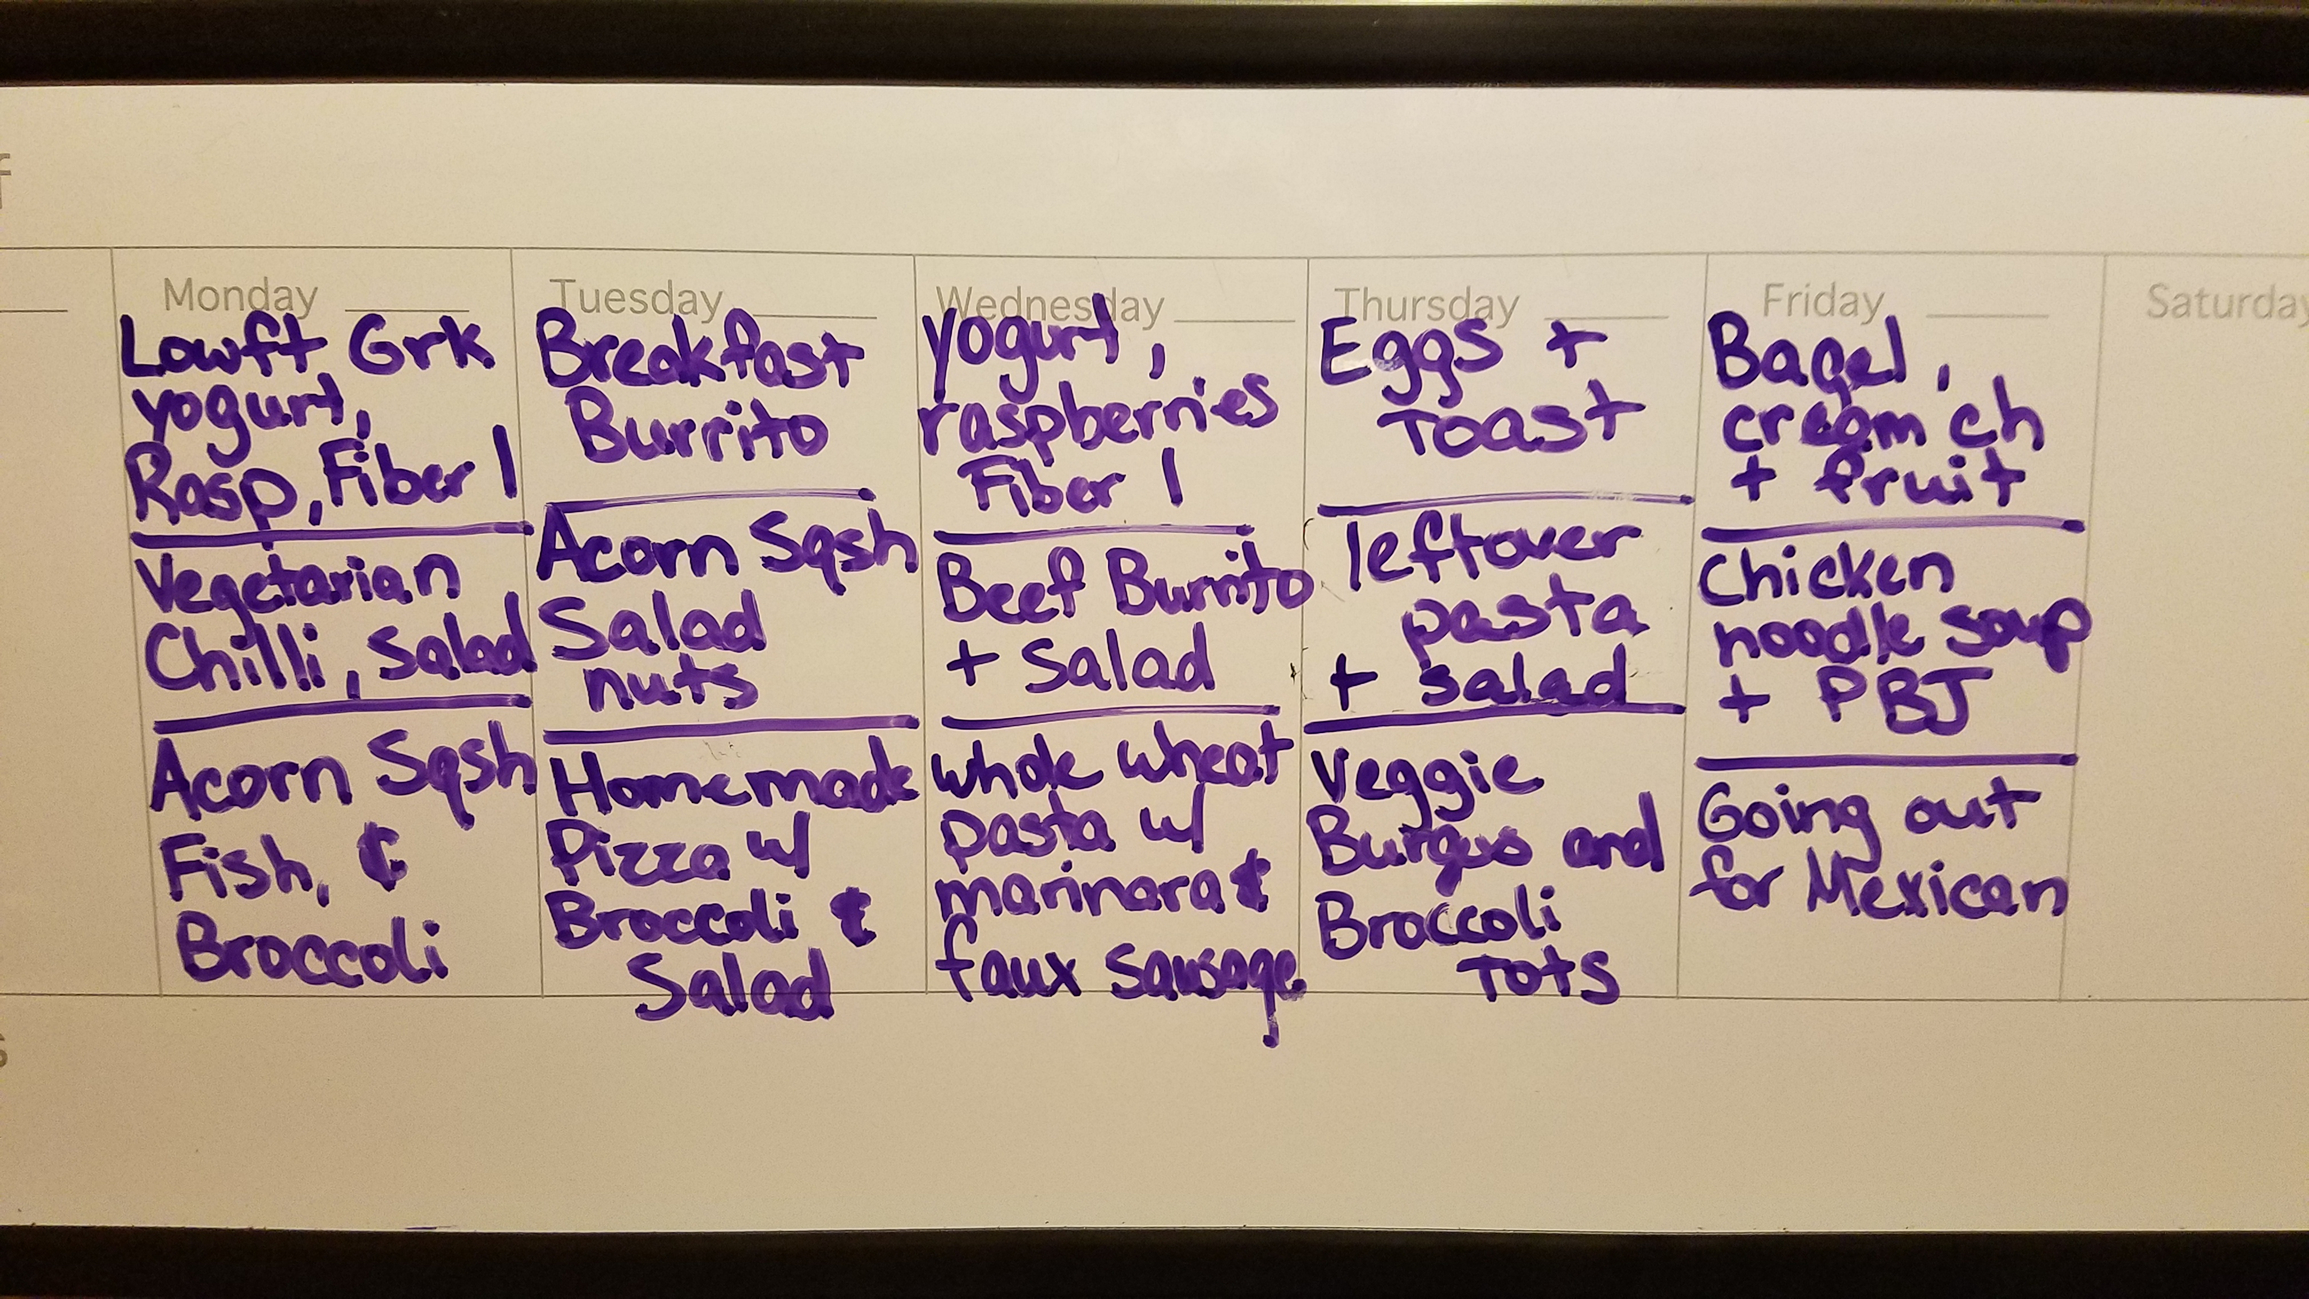 f
Monday
Lowft Grk
yogurt,
Rasp, Fiber 1
Vegetarian
Chilli, Salad
Acorn Sqsh
Fish, &
Broccoli
Tuesday
Breakfast
Burrito
Acorn Sqsh
Salad
nuts
Homemade
Pizza w/
Broccoli &
Salad
Wednesday
yogurt,
raspberries
Fiber 1
Beef Burrito
+ Salad
whole wheat
pasta w/
marinara &
faux sausage
Thursday
Eggs +
Toast
leftover
pasta
+ salad
Veggie
Burgus and
Broccoli
Tots
Friday
Bagel,
cream ch
+ fruit
Chicken
noodle soup
+ PBJ
Going out
for Mexican
Saturday
s